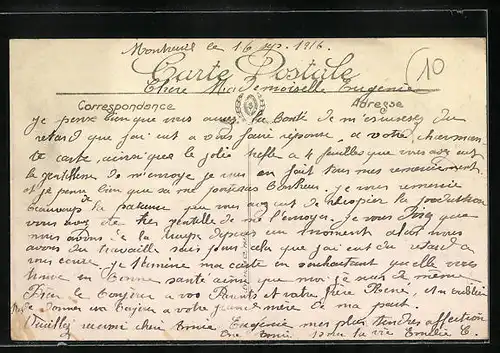 Montreuil le 16 sep. 1916.
10
Carte Postale
Chère Mademoiselle Eugénie
Correspondance Adresse
je pense bien que vous aurez la bonté de m'excuser du
retard que j'ai eut a vous faire réponse a votre charman-
te carte, ainsi que le jolie trefle a 4 feuilles que vous avez eut
la gentillesse de m'envoyer je vous en fait tous mes remerciements
et je pense bien que sa me portera bonheur. je vous remercie
beaucoup de la patience que vous avez eut de
vous avez été très gentille de me l'envoyer. Je vous
nous avons de la depuis un moment alors nous
avons du travaille sans c'est cela que j'ai eut du retard a
vous écrire. je termine ma carte en souhaitant qu'elle vous
trouve en bonne santé ainsi que moi je suis de même
Bien le bonjour a vos Parents et votre frère René, sans oublier
de donner un bonjour a votre grand mère de ma part.
Veuillez recevoir chère Amie Eugénie mes plus tendres affection
Une Amie pour la vie Emilie C.